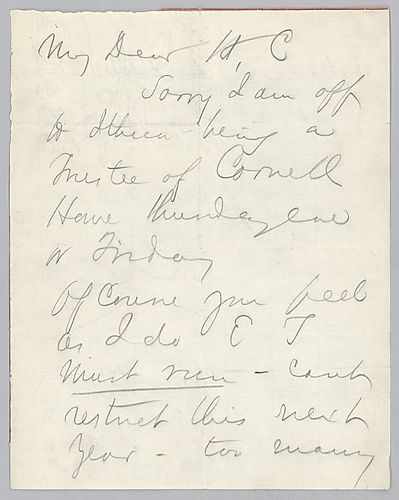 My Dear H, C
Sorry I am off
to Ithica - being a
Trustee of Cornell
Home Thursday eve
or Friday
Of course you feel
as I do E T
Must run - cant
restrict this next
year - too many